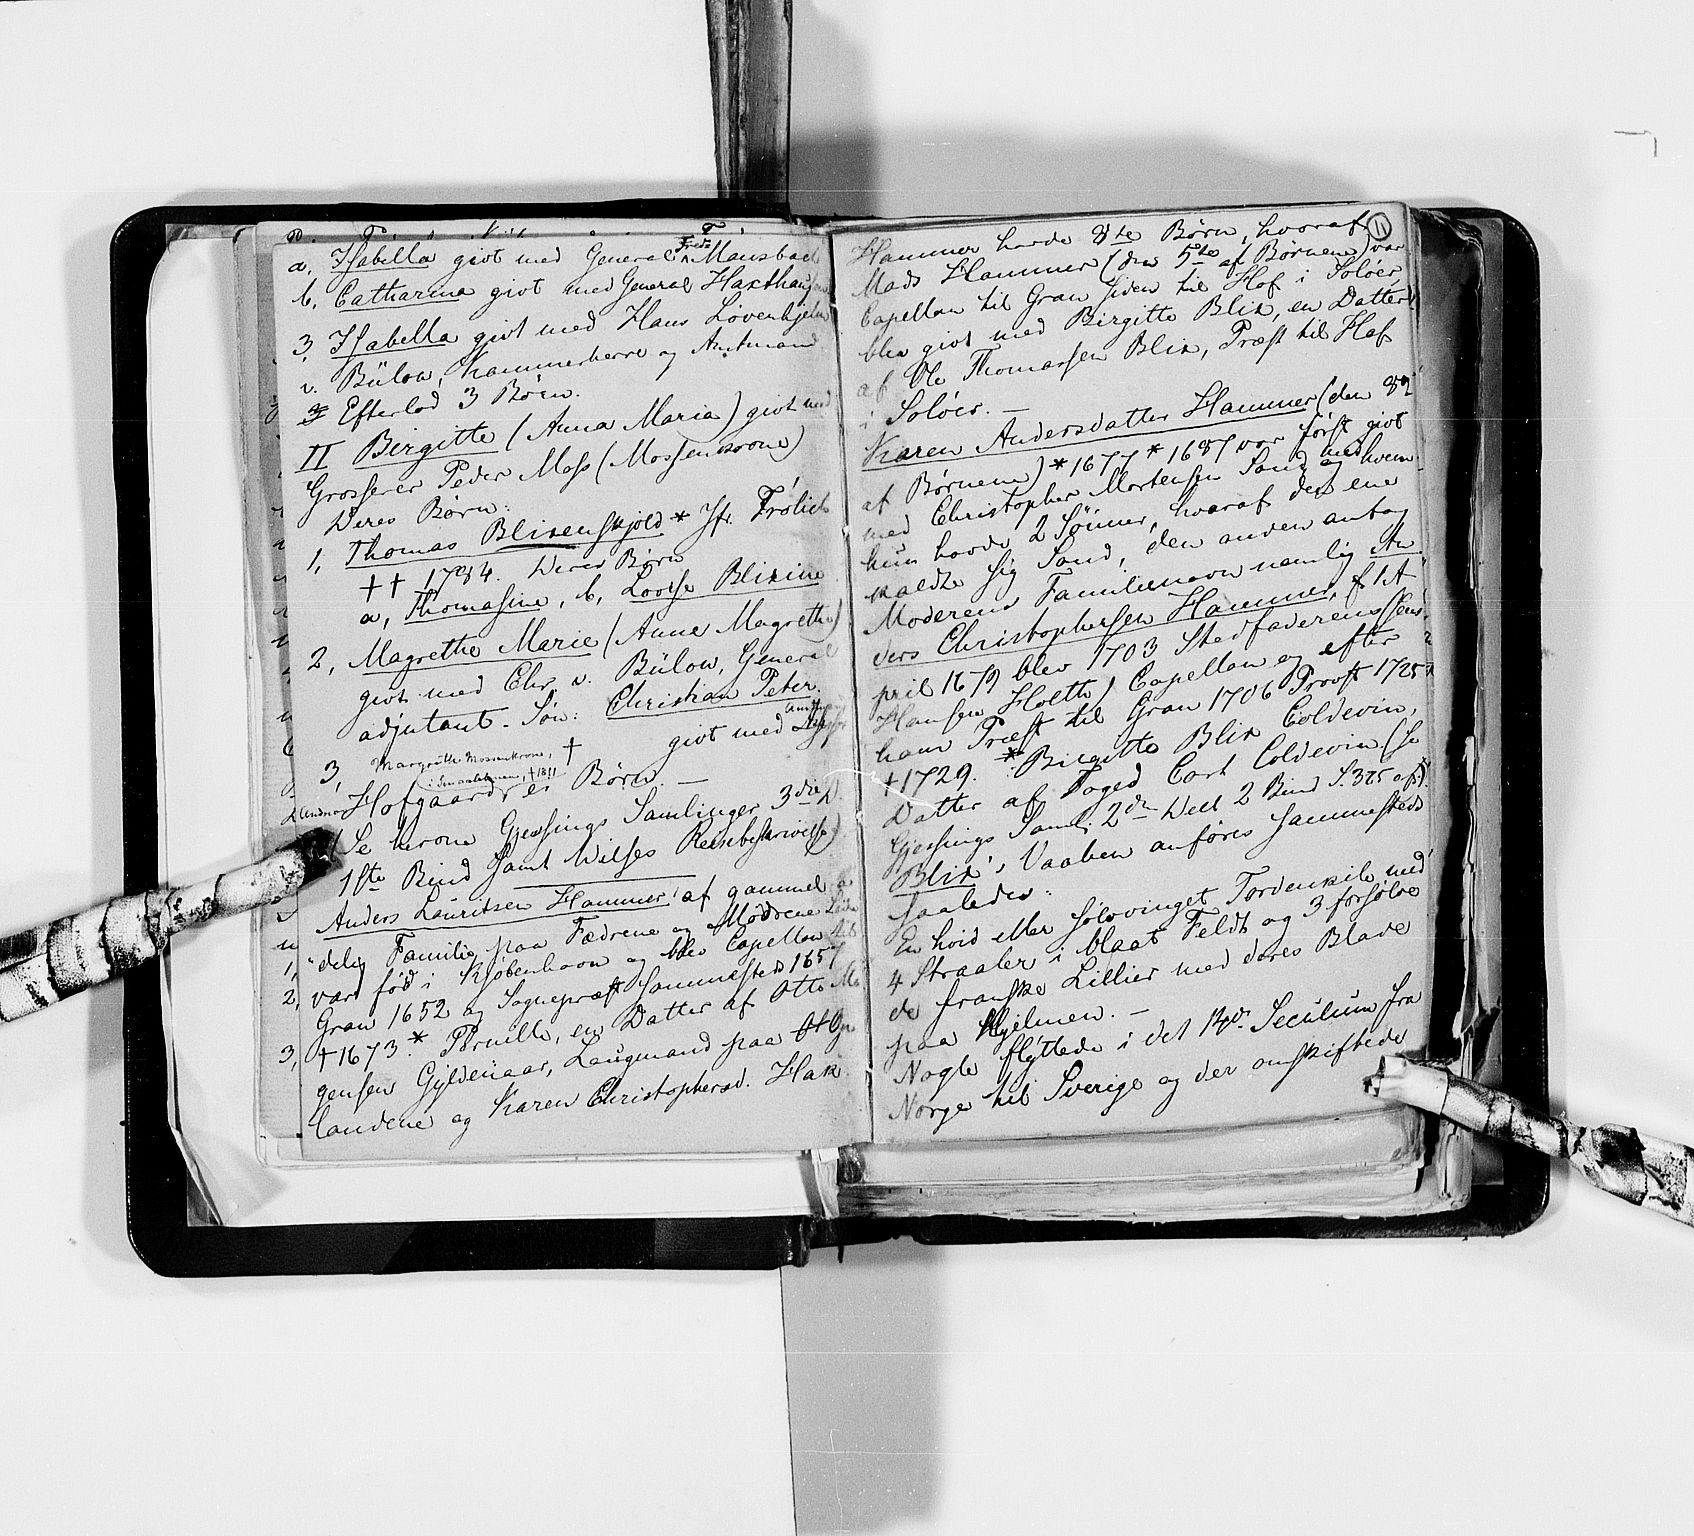 a, Isabella givt med General Fredr. Mansbach
b, Catharina givt med General Haxthausen
3, Isabella givt med Hans Løvenhjelm
v. Bülow, Kammerherre og Amtmand
Efterlod 3 Børn.
II Birgitte (Anna Maria) givt med
Grosserer Peder Moss (Mossencrone)
Deres Børn:
1, Thomas Blixenskjold * Jfr. Frølich
†† 1784. Deres Børn
a, Thomasine, b, Lovise Blixine
2, Magrethe Marie (Anne Magrethe)
givt med Chr. v. Bülow, General
adjutant - Søn: Christian Peter.
3, Margrethe Mossencrone, † givt med
i Smaalehnene, † 1811
Hofgaard, ei Børn. —
(Se herom Gjessings Samlinger 3die D.
1ste Bind samt Wilses Reisebeskrivelse)
Anders Lauritsen Hammer, af gammel a-
delig Familie paa Fædrene og Mødrene Side
var fød i Kjøbenhavn og blev Capellan til
Gran 1652 og Sognepræst sammesteds 1657
† 1673. * Pernille, en Datter af Otto Mo-
gensen Gyldenaar, Laugmand paa Op-
landene og Karen Christophersd. Hak
11
Hammer havde 8te Børn, hvoraf
Mads Hammer (den 5te af Børnene) var
Capellan til Gran siden til Hof i Soløer,
blev givt med Birgitte Blix, en Datter
af Ole Thomassen Blix, Præst til Hof
i Soløer. —
Karen Andersdatter Hammer (den 8de
af Børnene) * 1677 * 1687 var først givt
med Christopher Mortensen Sand og med hvem
hun havde 2 Sönner, hvoraf den ene
kaldte sig Sand, den anden antog
Moderens Familienavn nemlig An-
ders Christophersen Hammer, f. 1 A-
pril 1679 blev 1703 Stedfaderens (Jens
Hansen Holth) Capellan og efter
ham Præst til Gran 1706 Provst 1725
† 1729. * Birgitte Blix Coldevin,
Datter af Foged Cort Coldevin (Se
Gjessings Saml. 2den Deel 2 Bind S. 375 o.fl.).
Blix's Vaaben anføres sammesteds
saaledes:
En hvid eller sølvvinget Tordenkile med
4 Straaler i blaat Feldt og 3 forsølve-
de franske Lillier med deres Blade
paa Hjelmen. —
Nogle flyttede i det 14de Seculum fra
Norge til Sverige og der omskiftede